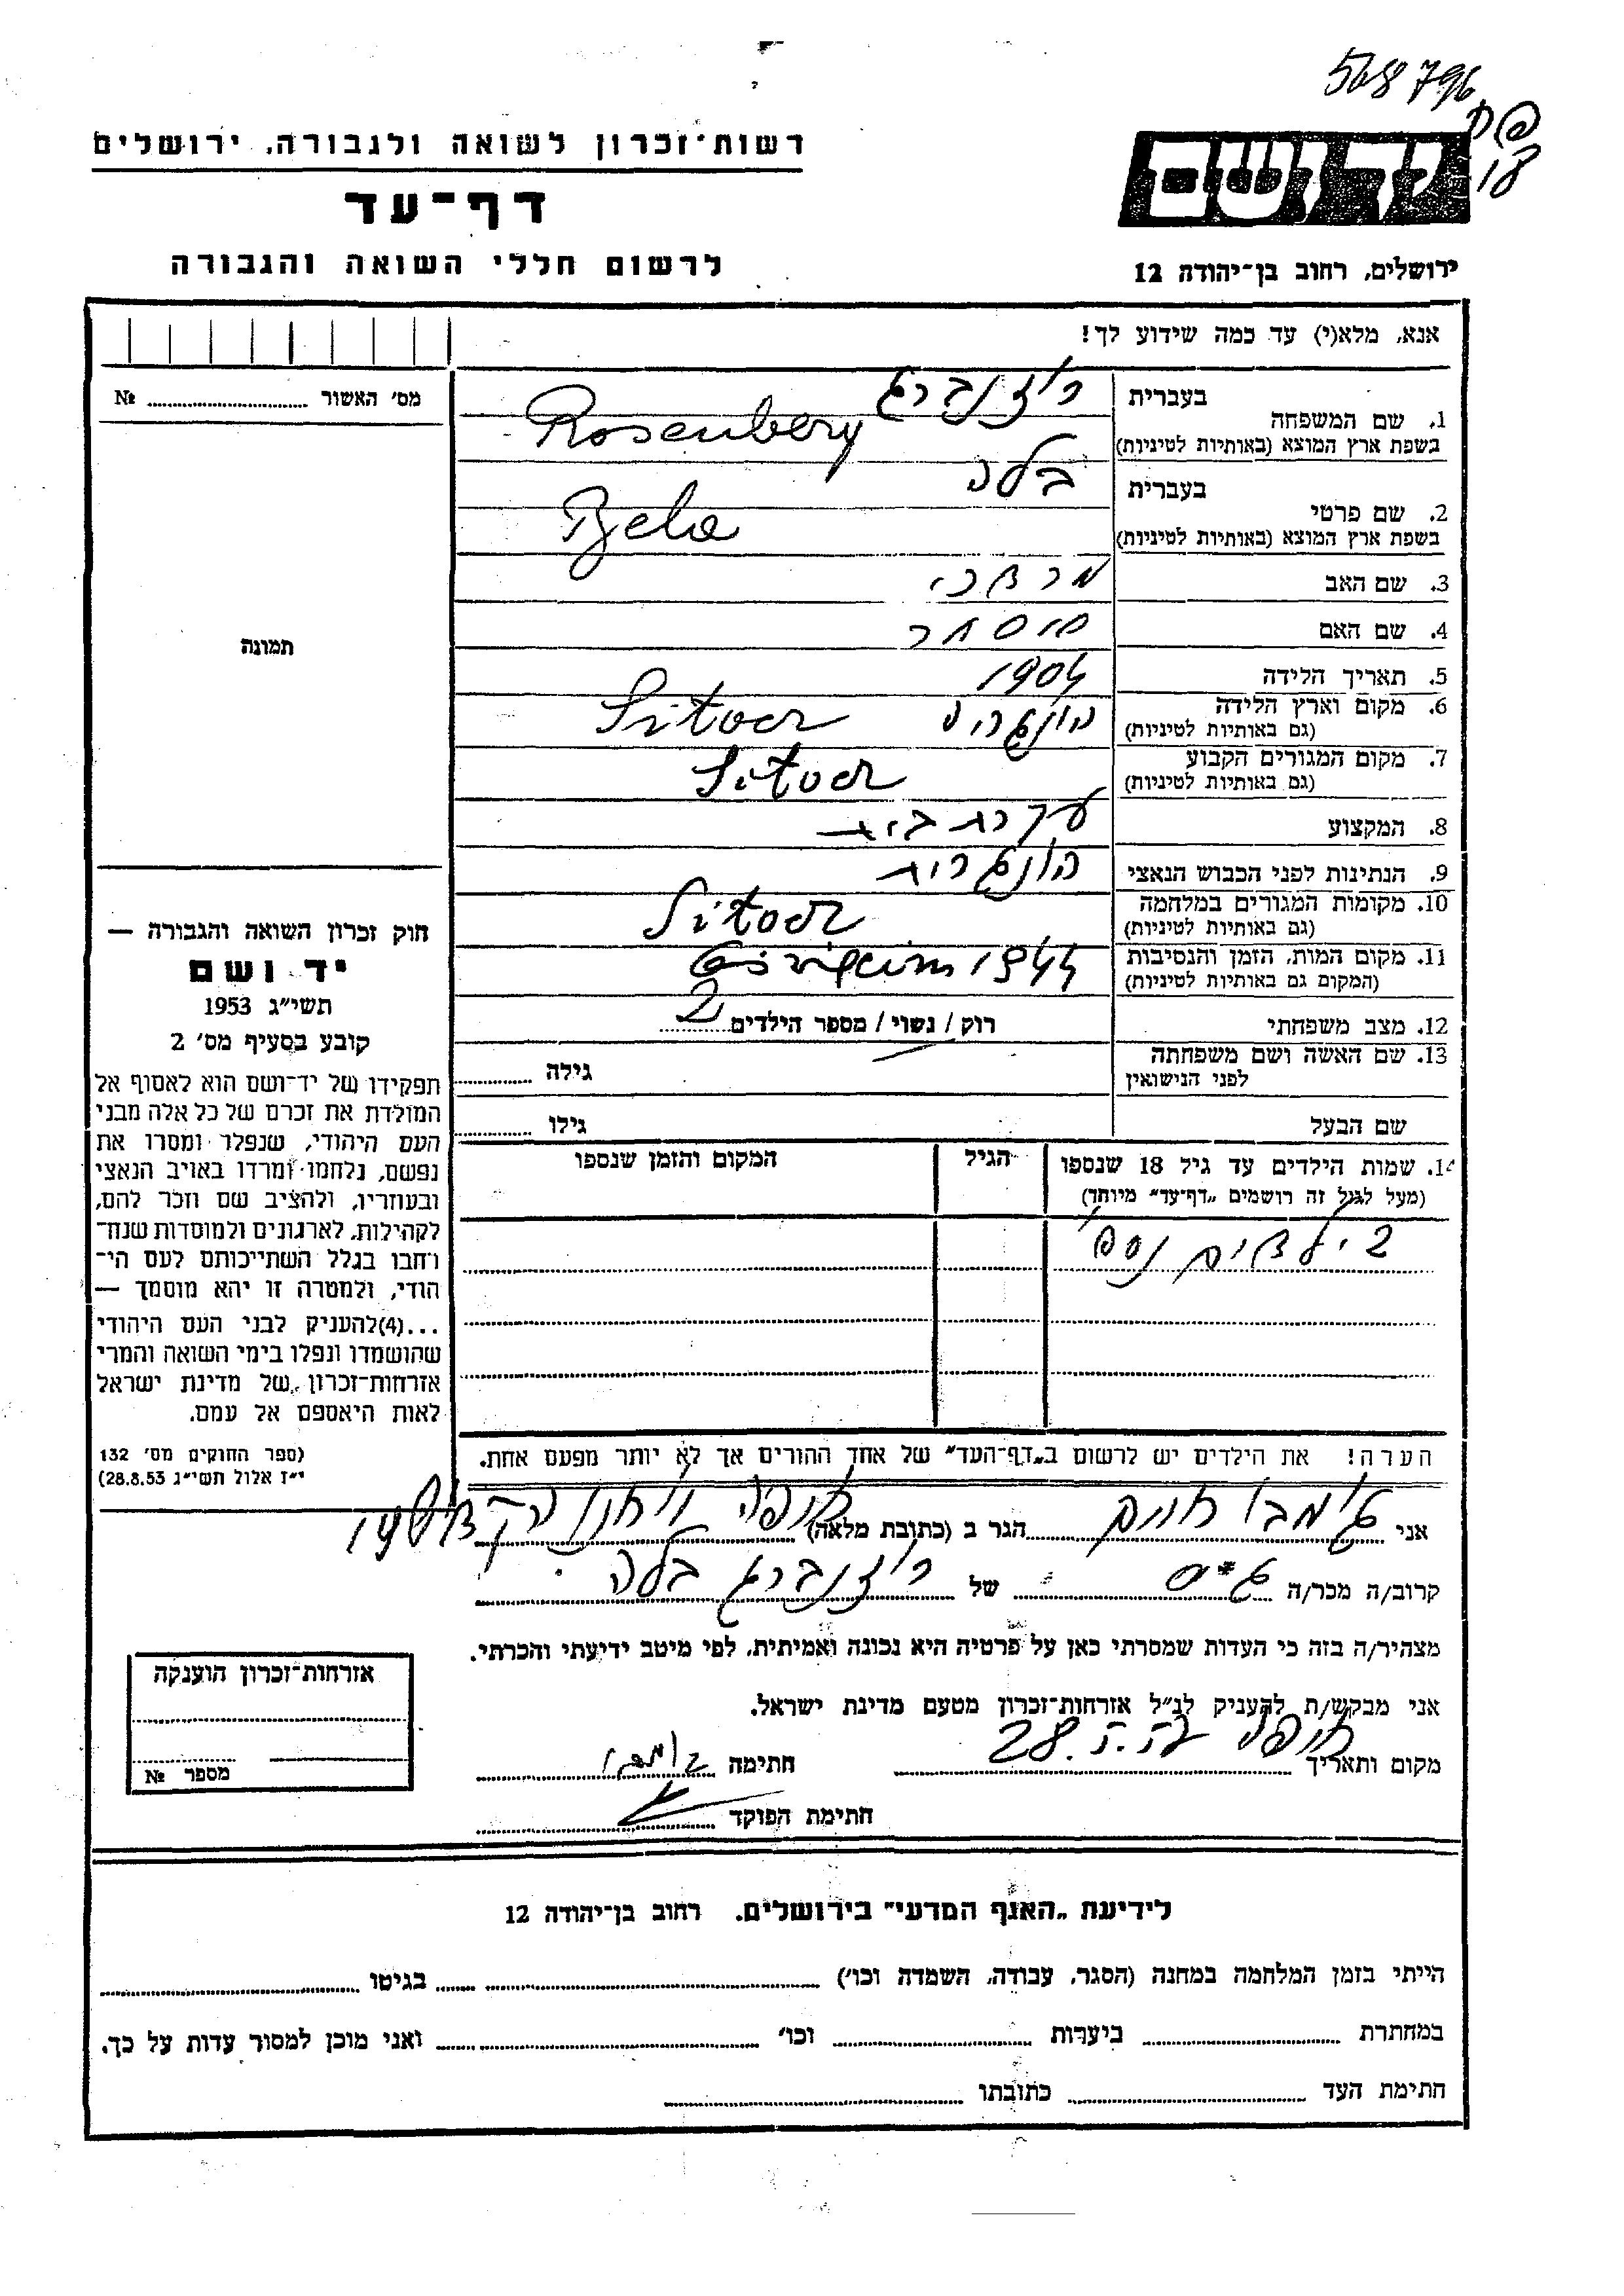 568796
רשות־זכרון לשואה ולגבורה, ירושלים
דף־עד
לרשום חללי השואה והגבורה
יד ושם
ירושלים, רחוב בן־יהודה 12
אנא, מלא(י) עד כמה שידוע לך!
מס׳ האשור № 
1. שם המשפחה
בעברית רוזנברג
בשפת ארץ המוצא (באותיות לטיניות) Rosenberg
2. שם פרטי
בעברית בלה
בשפת ארץ המוצא (באותיות לטיניות) Bela
3. שם האב מרדכי
4. שם האם
5. תאריך הלידה 1904
6. מקום וארץ הלידה
(גם באותיות לטיניות) הונגריה
7. מקום המגורים הקבוע
(גם באותיות לטיניות)
8. המקצוע עקרת בית
9. הנתינות לפני הכבוש הנאצי הונגרית
10. מקומות המגורים במלחמה
(גם באותיות לטיניות)
11. מקום המות, הזמן והנסיבות
(המקום גם באותיות לטיניות) 1944
12. מצב משפחתי רוק / נשוי / מספר הילדים 2
13. שם האשה ושם משפחתה
לפני הנישואין גילה
שם הבעל גילו
14. שמות הילדים עד גיל 18 שנספו
(מעל לגיל זה רושמים „דף־עד״ מיוחד)
הגיל
המקום והזמן שנספו
2 ילדים נספו
הערה! את הילדים יש לרשום ב„דף־העד״ של אחד ההורים אך לא יותר מפעם אחת.
תמונה
חוק זכרון השואה והגבורה —
יד ושם
תשי״ג 1953
קובע בסעיף מס׳ 2
תפקידו של יד־ושם הוא לאסוף אל
המולדת את זכרם של כל אלה מבני
העם היהודי, שנפלו ומסרו את
נפשם, נלחמו ומרדו באויב הנאצי
ובעוזריו, ולהציב שם וזכר להם,
לקהילות, לארגונים ולמוסדות שנח־
רחבו בגלל השתייכותם לעם הי־
הודי, ולמטרה זו יהא מוסמך —
...(4)להעניק לבני העם היהודי
שהושמדו ונפלו בימי השואה והמרי
אזרחות־זכרון של מדינת ישראל
לאות היאספם אל עמם.
(ספר החוקים מס׳ 132
י״ז אלול תשי״ג 28.8.53)
אני חיים הגר ב (כתובת מלאה) חיפה
קרוב/ה מכר/ה גיס של רוזנברג בלה
מצהיר/ה בזה כי העדות שמסרתי כאן על פרטיה היא נכונה ואמיתית, לפי מיטב ידיעתי והכרתי.
אני מבקש/ת להעניק לנ״ל אזרחות־זכרון מטעם מדינת ישראל.
מקום ותאריך חיפה 28. חתימה
חתימת הפוקד
אזרחות־זכרון הוענקה
מספר №
לידיעת „האגף המדעי״ בירושלים, רחוב בן־יהודה 12
הייתי בזמן המלחמה במחנה (הסגר, עבודה, השמדה וכו׳) בגיטו
במחתרת ביערות וכו׳ ואני מוכן למסור עדות על כך.
חתימת העד כתובתו